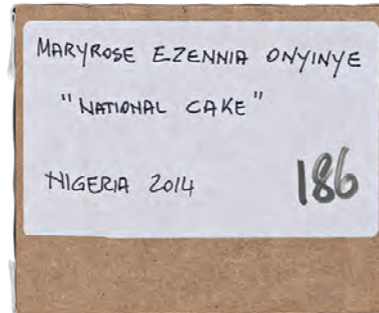 MARYROSE EZENNIA ONYINYE
"NATIONAL CAKE"
NIGERIA 2014 186